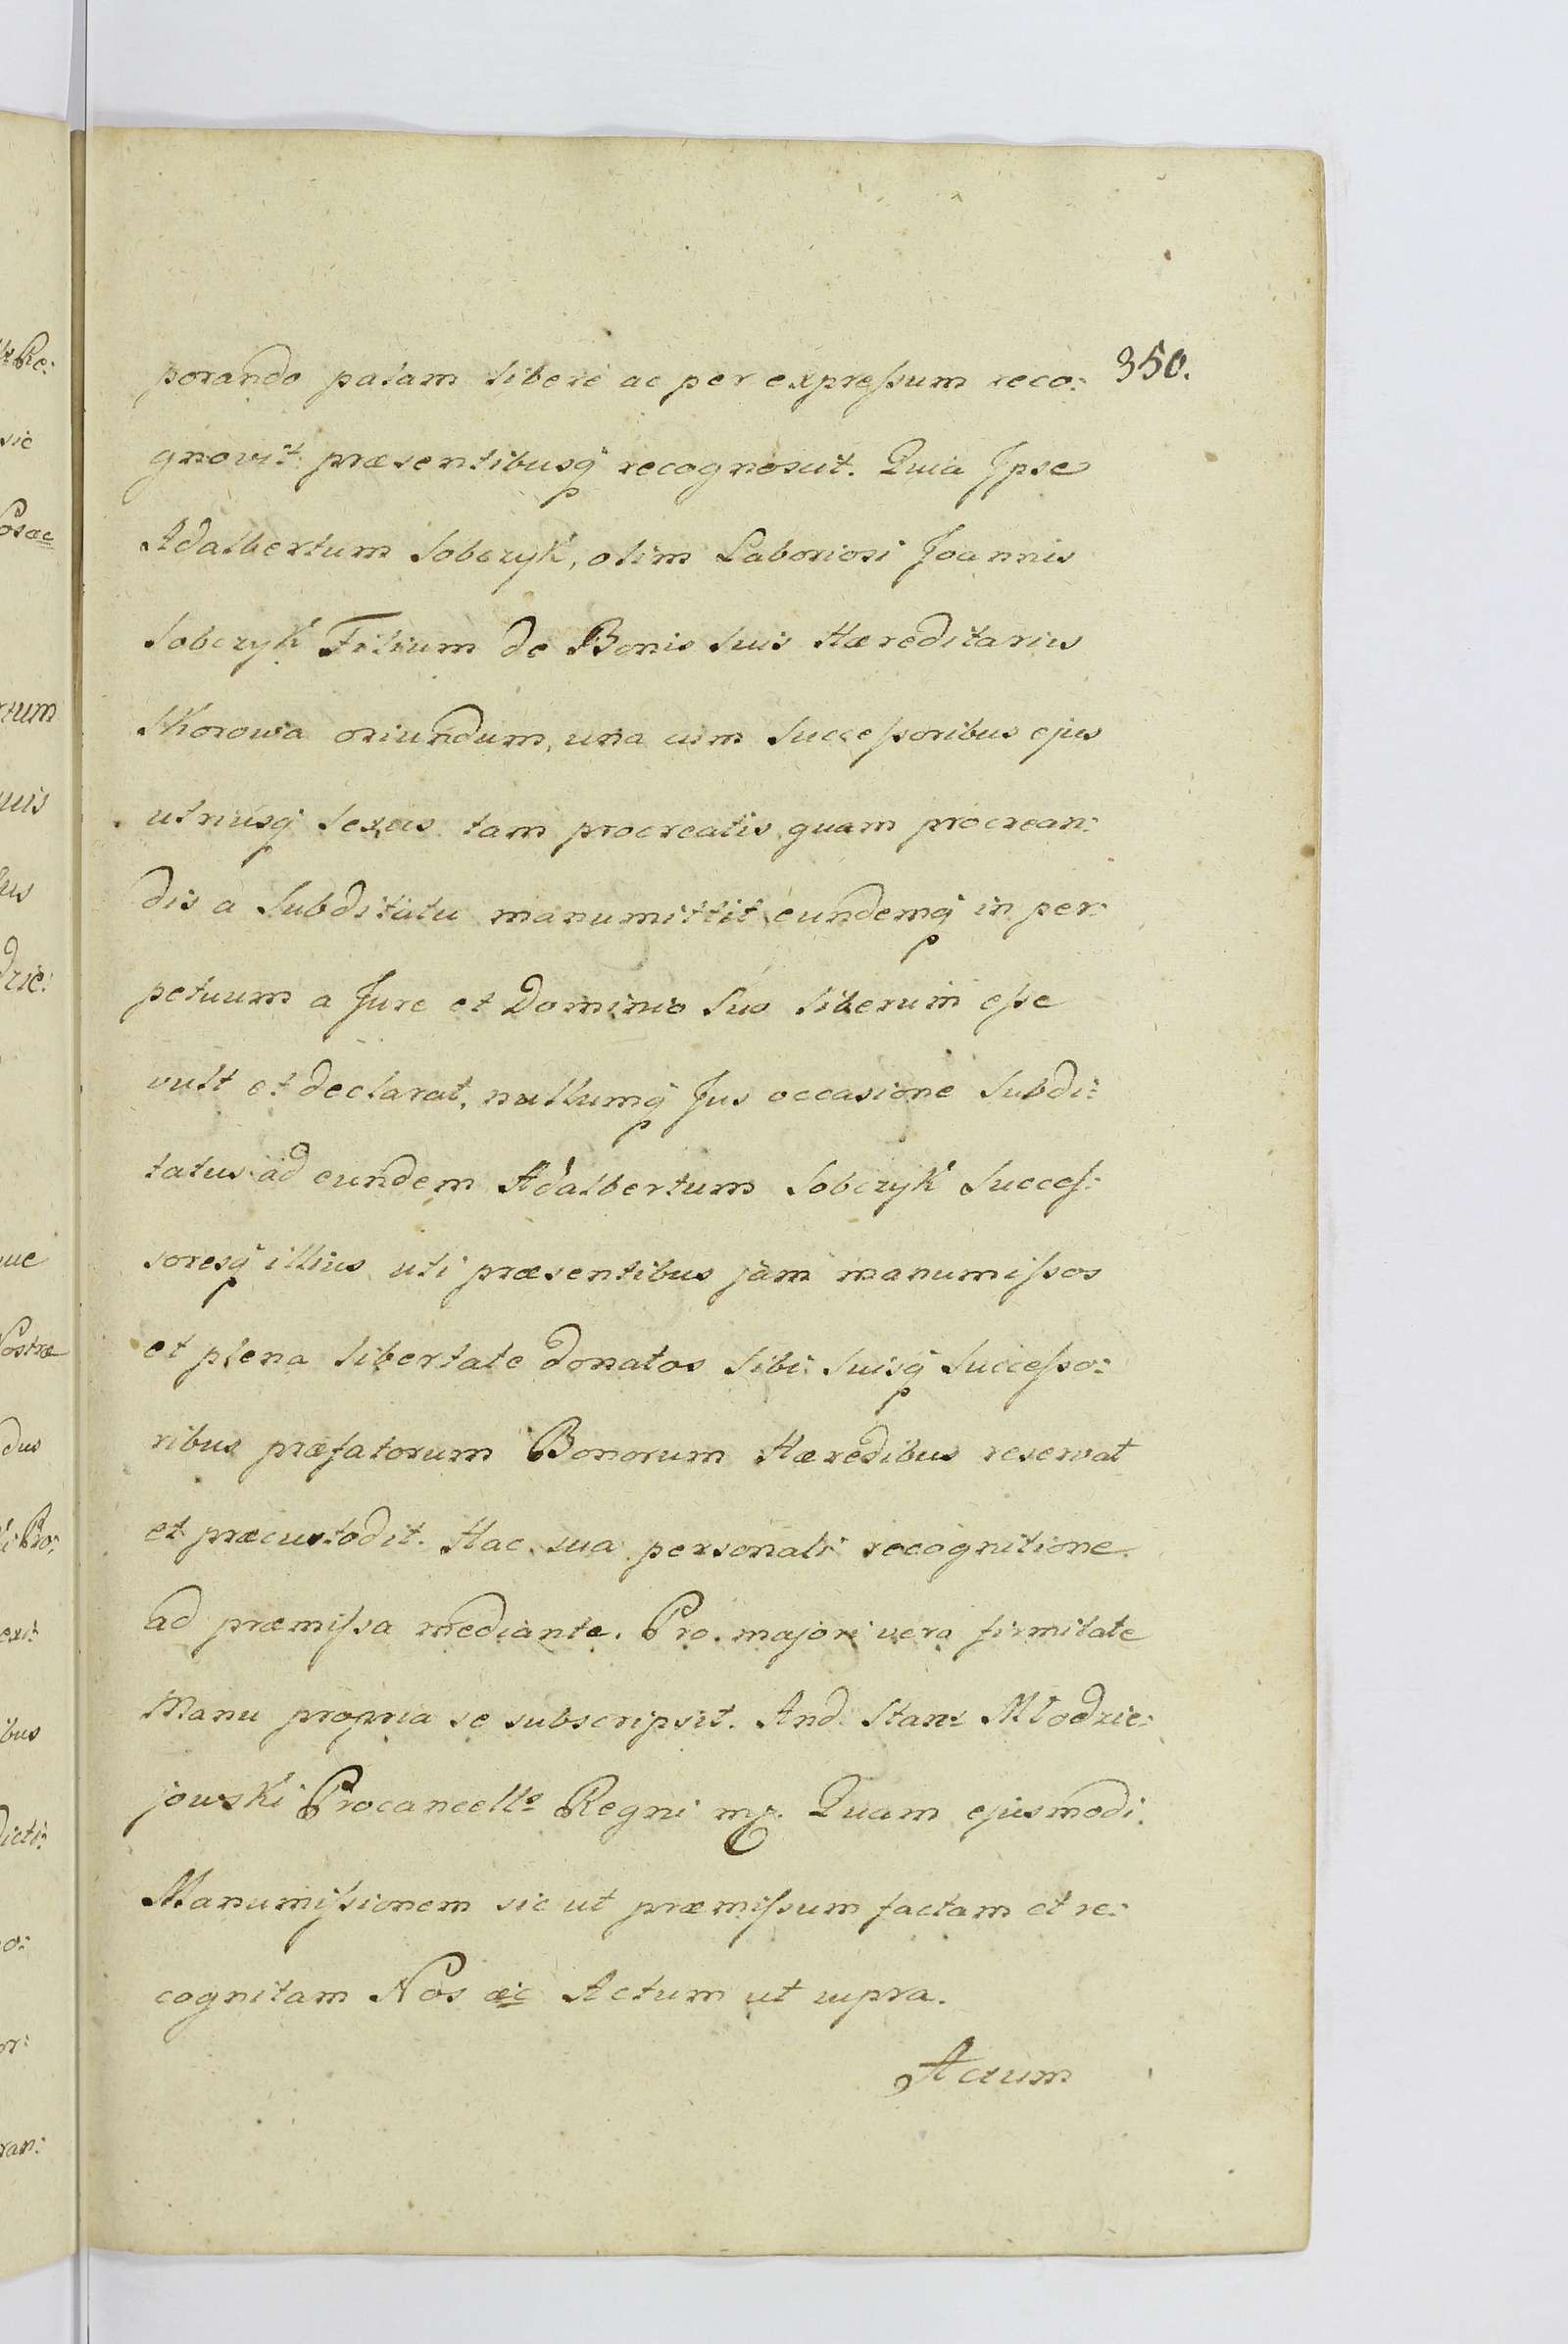 350.
porando palam libere ac per expreſsum reco:
gnovit præsentibusq̃ recognoscit. Quia Ipse
Adalbertum Sobczyk, olim Laboriosi Joannis
Sobczyk Filium de Bonis suis Hæreditariis
Skorowa oriundum, una cum Succeſsoribus ejus
utriusq̃ sexus tam procreatis quam procrean:
dis a Subditatu manumittit eundemq̃ in per:
petuum a Jure et Dominio Suo liberum eſse
vult et declarat, nullumq̃ Jus occasione Subdi:
tatus ad eundem Adalbertum Sobczyk Succeſ:
soresq̃ illius uti præsentibus jam manumiſsos
et plena libertate donatos sibi suisq̃ Succeſso:
ribus præfatorum Bonorum Hæredibus reservat
et præcustodit. Hac sua personali recognitione
ad præmiſsa mediante. Pro majori vero firmitate
Manu propria se subscripsit. And. Stan: Młodzie:
jowski Procancells Regni mp. Quam ejusmodi
Manumiſsionem sic ut præmiſsum factam et re:
cognitam Nos &c Actum ut supra.
Actum